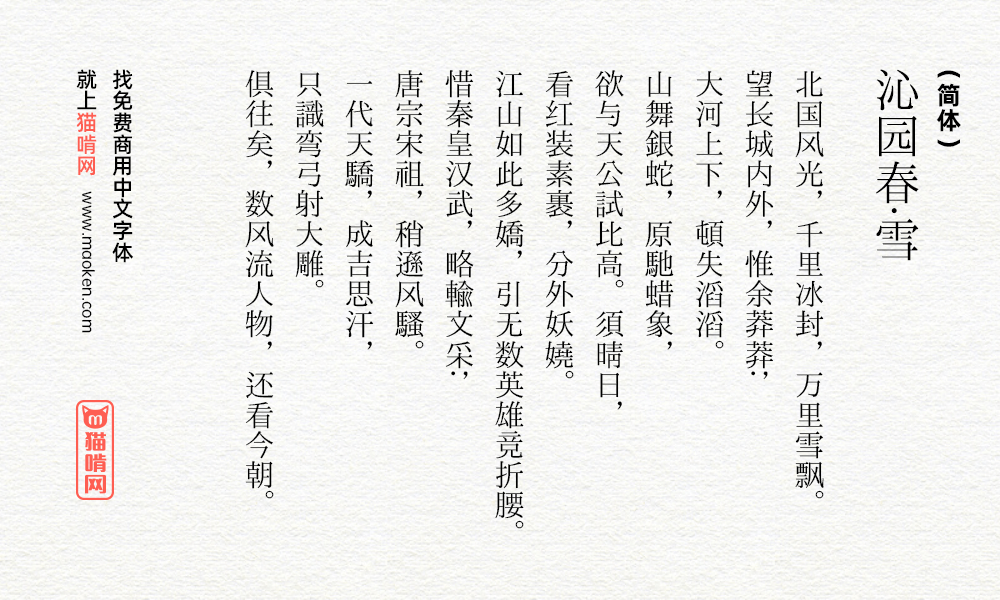 (简体)
沁园春·雪
北国风光，千里冰封，万里雪飘。
望长城内外，惟余莽莽；
大河上下，頓失滔滔。
山舞銀蛇，原馳蜡象，
欲与天公試比高。須晴日，
看红装素裹，分外妖嬈。
江山如此多嬌，引无数英雄竞折腰。
惜秦皇汉武，略輸文采；
唐宗宋祖，稍遜风騷。
一代天驕，成吉思汗，
只識弯弓射大雕。
俱往矣，数风流人物，还看今朝。
找免费商用中文字体
就上猫啃网 www.maoken.com
猫啃网